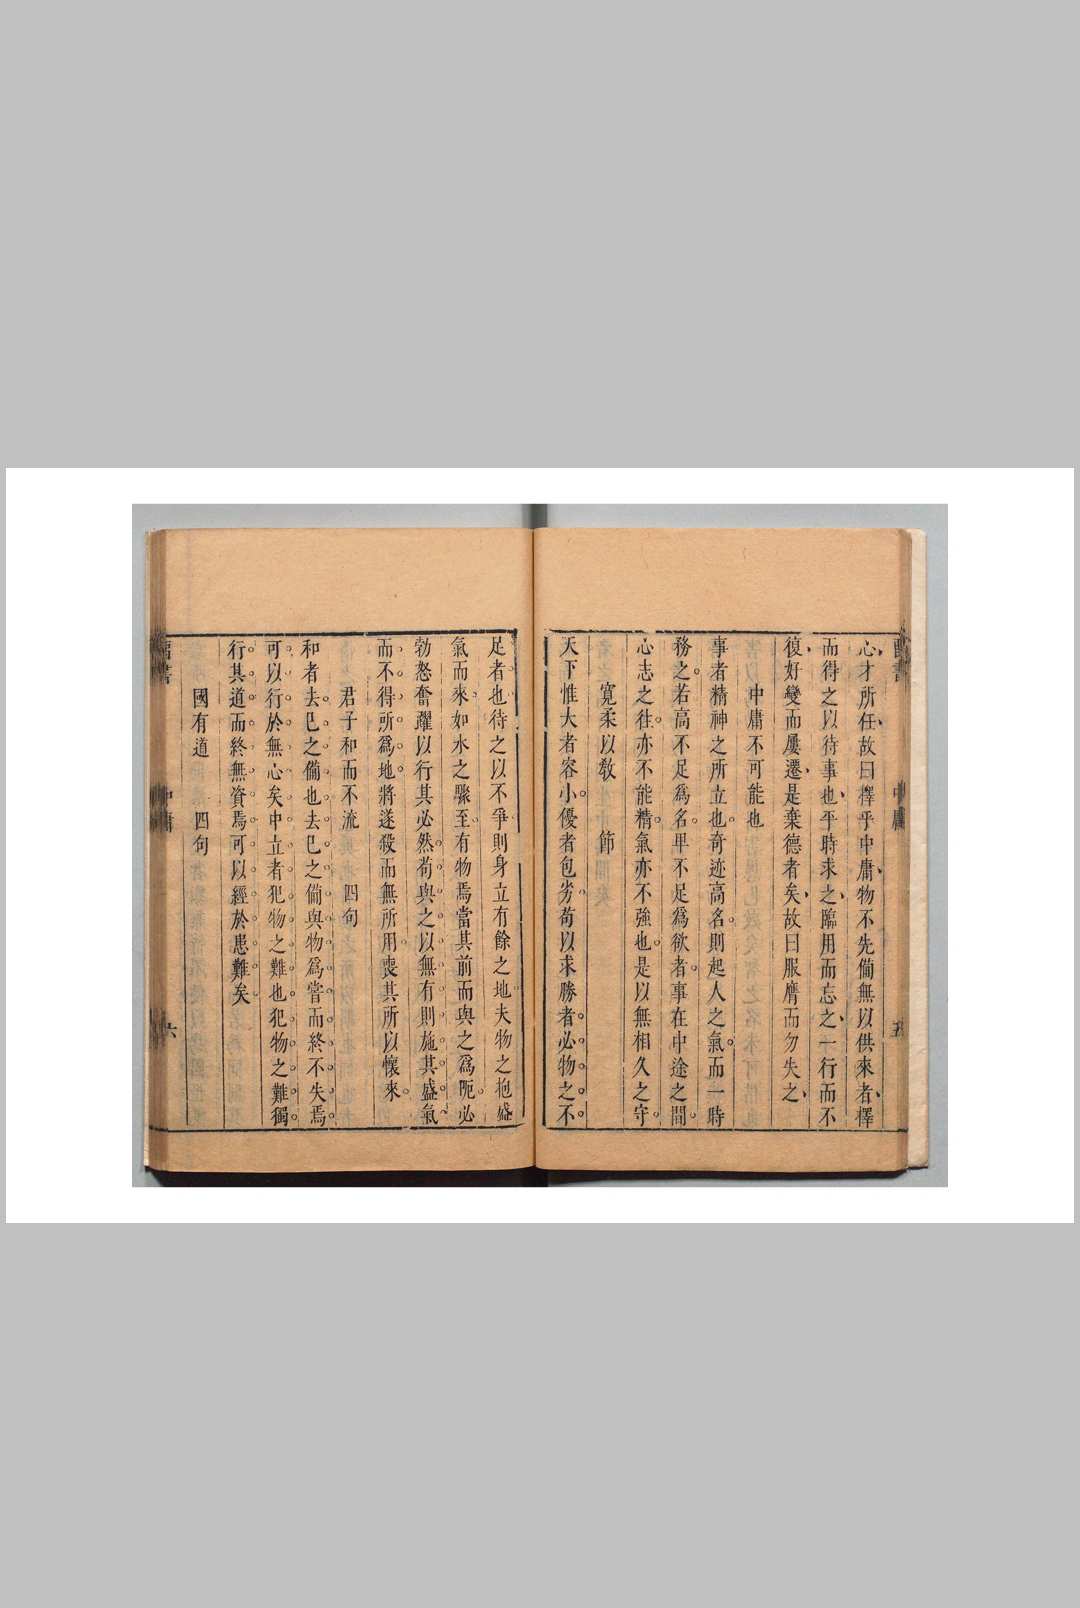 心才所任故曰擇乎中庸物不先僃無以供來者擇
而得之以待事也平時求之臨用而忘之一行而不
復好變而屢遷是棄德者矣故曰服膺而勿失之
中庸不可能也
事者精神之所立也奇迹高名則起人之氣而一時
務之若高不足爲名卑不足爲欲者事在中途之間
心志之往亦不能精氣亦不強也是以無相久之守
寬柔以敎 節
天下惟大者容小優者包劣苟以求勝者必物之不
中庸
五
足者也待之以不爭則身立有餘之地夫物之抱盛
氣而來如水之驟至有物焉當其前而與之爲阨必
勃怒奮躍以行其必然苟與之以無有則施其盛氣
而不得所爲地將遂殺而無所用喪其所以懷來
君子和而不流 四句
和者去已之僃也去已之僃與物爲嘗而終不失焉
可以行於無心矣中立者犯物之難也犯物之難獨
行其道而終無資焉可以經於患難矣
國有道 四句
中庸
六